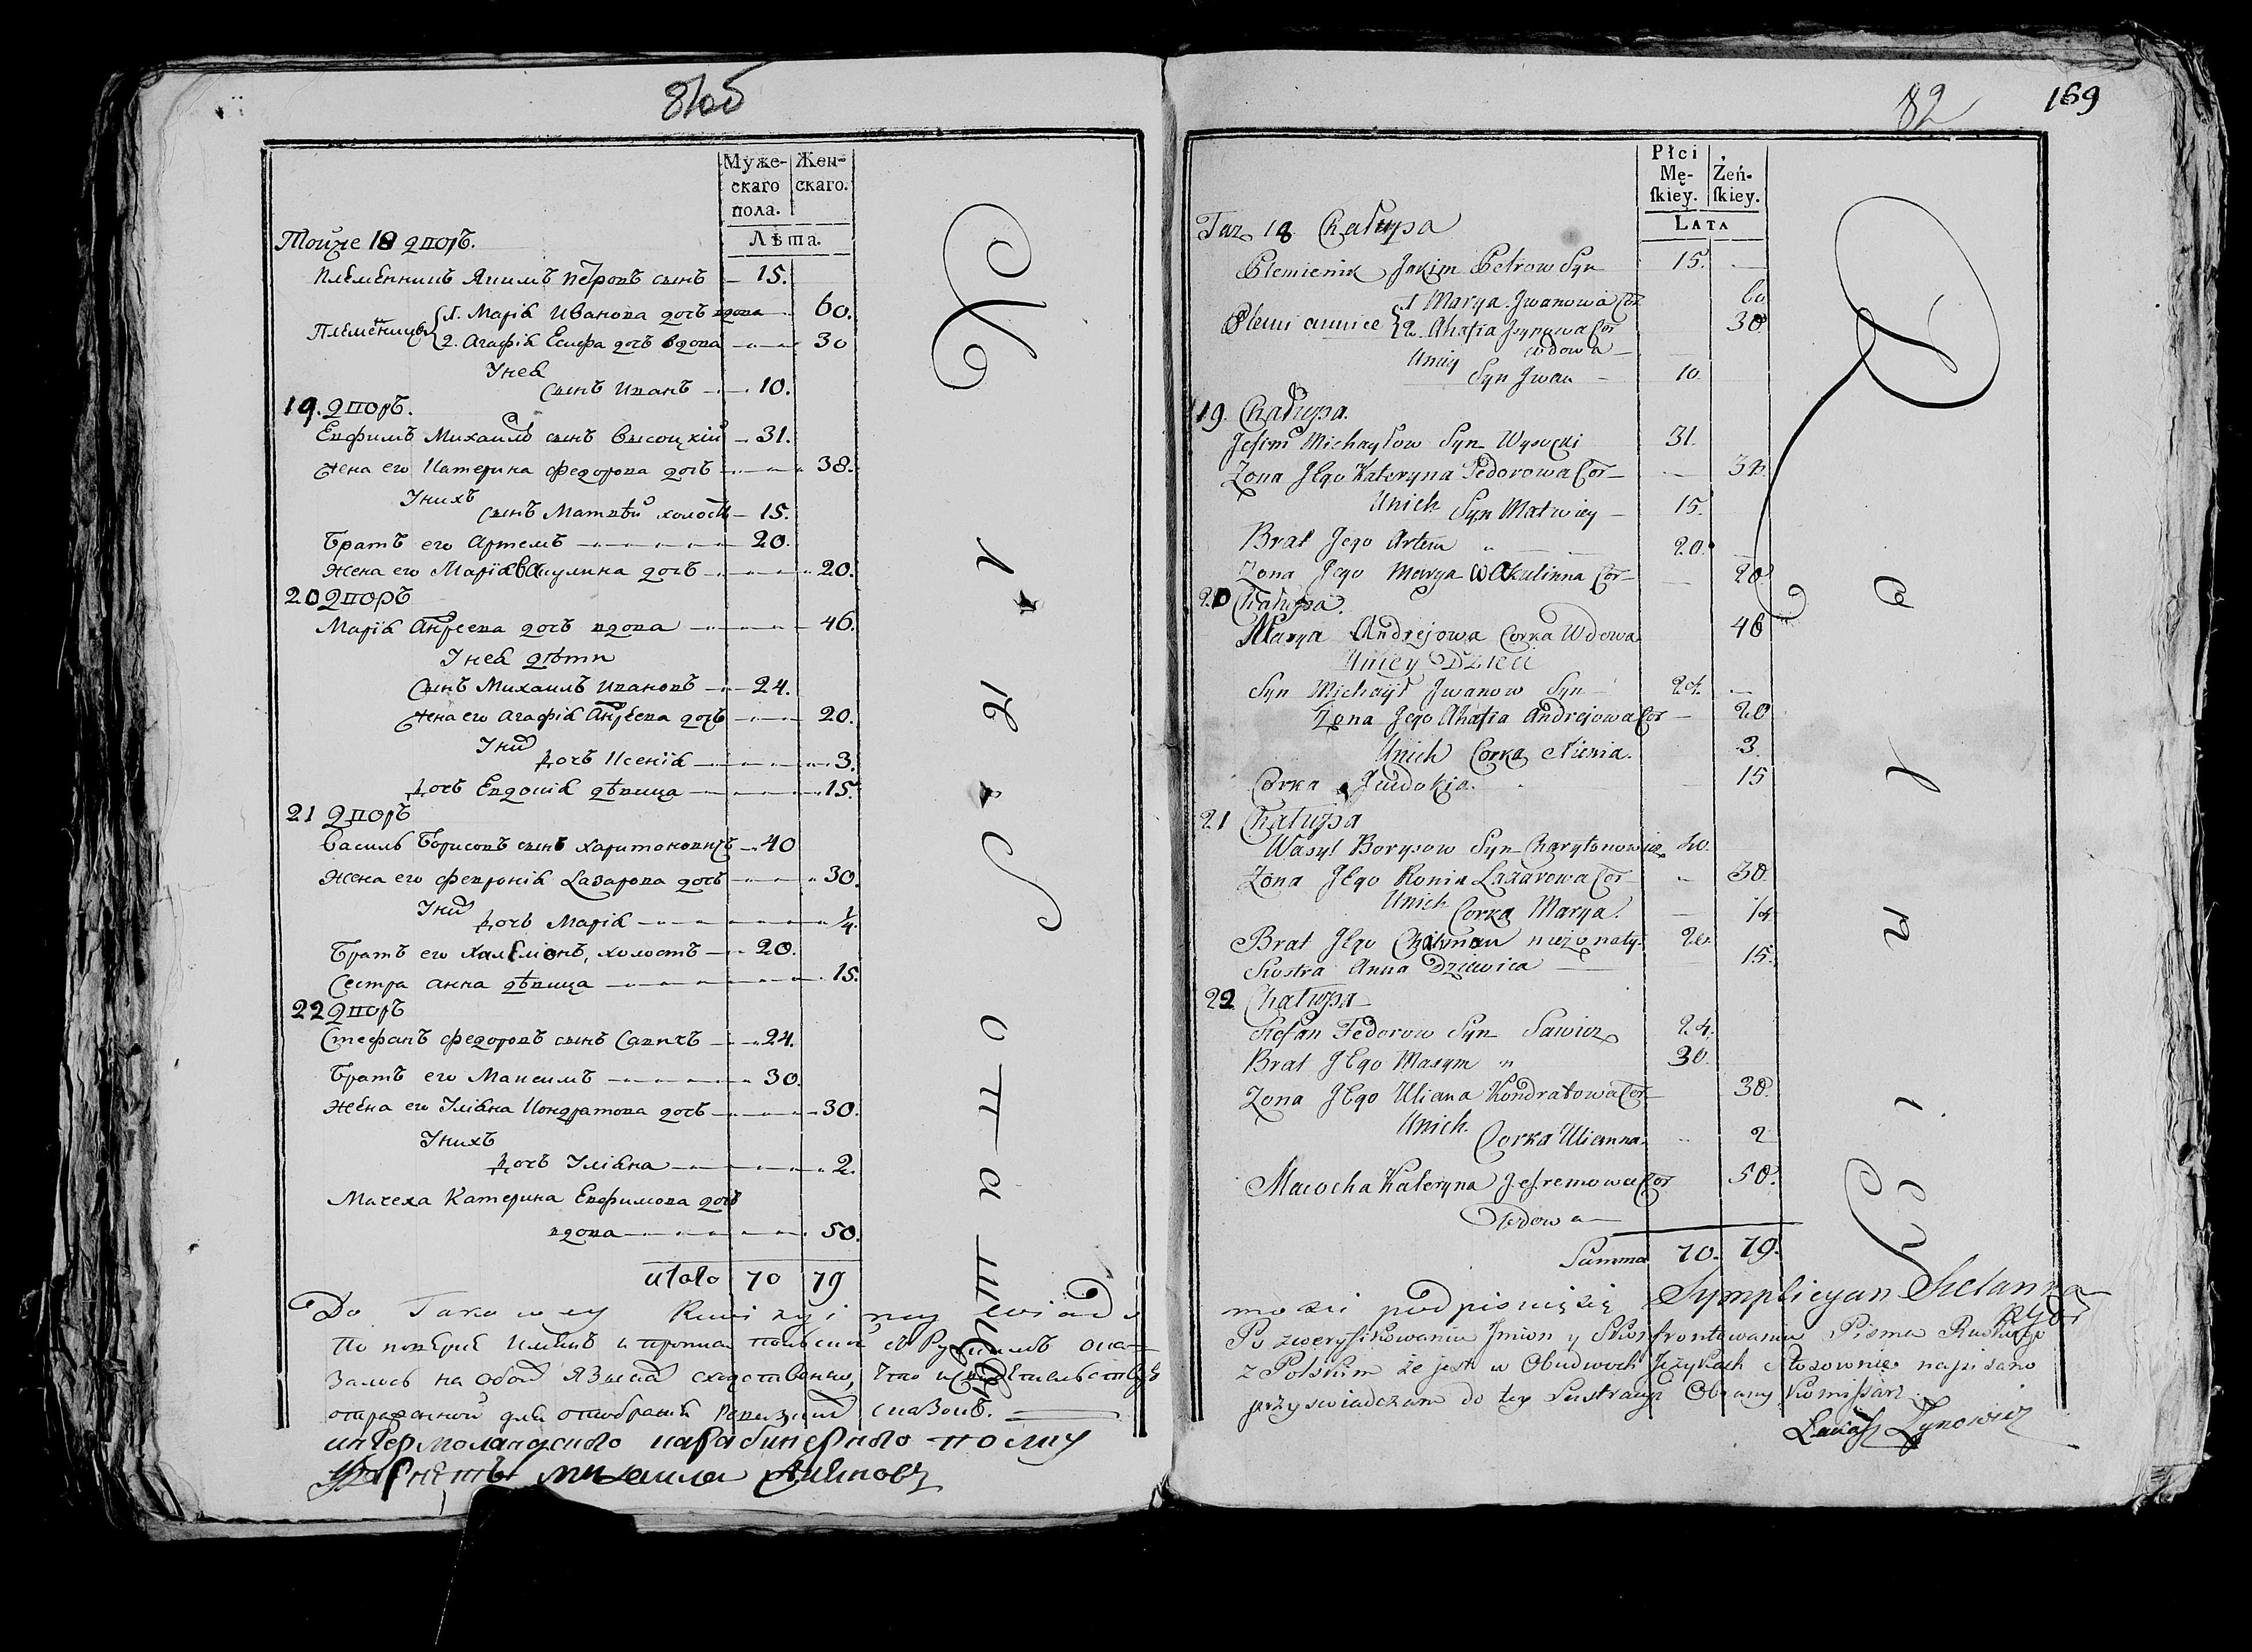 81об
Муже- Жен-
скаго скаго.
пола.
Лѣта.
Тойже 18 дворъ.
Племенникъ Якимъ Петровъ сынъ 15.
Племенницы 1. Марія Иванова дочь вдова 60.
2. Агафія Есифа дочь вдова 30
У нея
сынъ Иванъ 10.
19. дворъ.
Евфимъ Михаилъ сынъ Высоцкій 31.
Жена его Катерина Федорова дочь 38.
У нихъ
сынъ Матвѣй холостъ 15.
Братъ его Артемъ 20.
Жена его Марія Вакулина дочь 20.
20 дворъ
Марія Андреева дочь вдова 46.
У нея дѣти
Сынъ Михаилъ Ивановъ 24.
Жена его Агафія Андреева дочь 20.
У них
дочь Ксенія 3.
дочь Евдокія дѣвица 15.
21 дворъ
Василь Борисовъ сынъ Харитоновичъ 40
Жена его Февронія Лазарова дочь 30.
У них
дочь Марія 1/4
Братъ его Халемонъ, холостъ 20.
Сестра Анна дѣвица 15.
22 дворъ
Стефанъ Федоровъ сынъ Савичъ 24.
Братъ его Максимъ 30.
Жена его Уліяна Кондратова дочь 30.
У нихъ
дочь Уліяна 2.
Мачеха Катерина Евфимова дочь
вдова 50.
Итого 70 79
Do Takowey Rewizyi my wiado
По поверке имянъ и
залось на обоих языках сходственно, что и
отряженной для отобранія ревизких сказокъ.
Ингермоландского карабинерного полку
Михаила
82
169
Płci Żeń-
Mę- skiey.
skiey.
LATA
Taz 18 Chałupa
Plemienik Jakim Petrow Syn 15.
Plemiannice 1 Marya Jwanowa Cor 60
2. Ahafia Cor 30
wdowa
Uniey
Syn Jwan 10
19. Chałupa.
Jefim Michayłow Syn Wysocki 31.
Zona Jego Kateryna Fedorowa Cor 38
Unich
Syn Matwiey 15.
Brat Jego Artem 20.
Zona Jego Marya Wakulinna Cor 20
20 Chałupa.
Marya Andrejowa Corka Wdowa 46
Uniey Dzieci
Syn Michaył Jwanow Syn 24.
Zona Jego Ahafia Andrejowa Cor 20
Unich Corka 3
Corka Jeudokia. 15
21 Chałupa
Wasyl Borysow Syn Charytonowicz 40.
Zona Jego Ronia Lazarowa Cor 30.
Unich
Corka Marya. 1/4
Brat Jego niezonaty. 20.
Siostra Anna Dziewica 15.
22 Chałupa
Stefan Fedorow Syn Sawicz 24.
Brat Jego Maxym 30.
Zona Jego Uliana Kondratowa Cor 30.
Unich.
Corka Ulianna 2
Macocha Kateryna Jefremowa Cor 50.
Wdowa
Summa 70. 79.
mosci podpisuię się Symplicyan
Po zweryfikowaniu Jmion y Skonfrontowaniu Pisma Ruskiego
z Polskim że jest w Obudwoch Językach stosownie napisano
przyswiadczam do tey Lustracyi Obrany Komissarz.
Łukasz Zynowicz